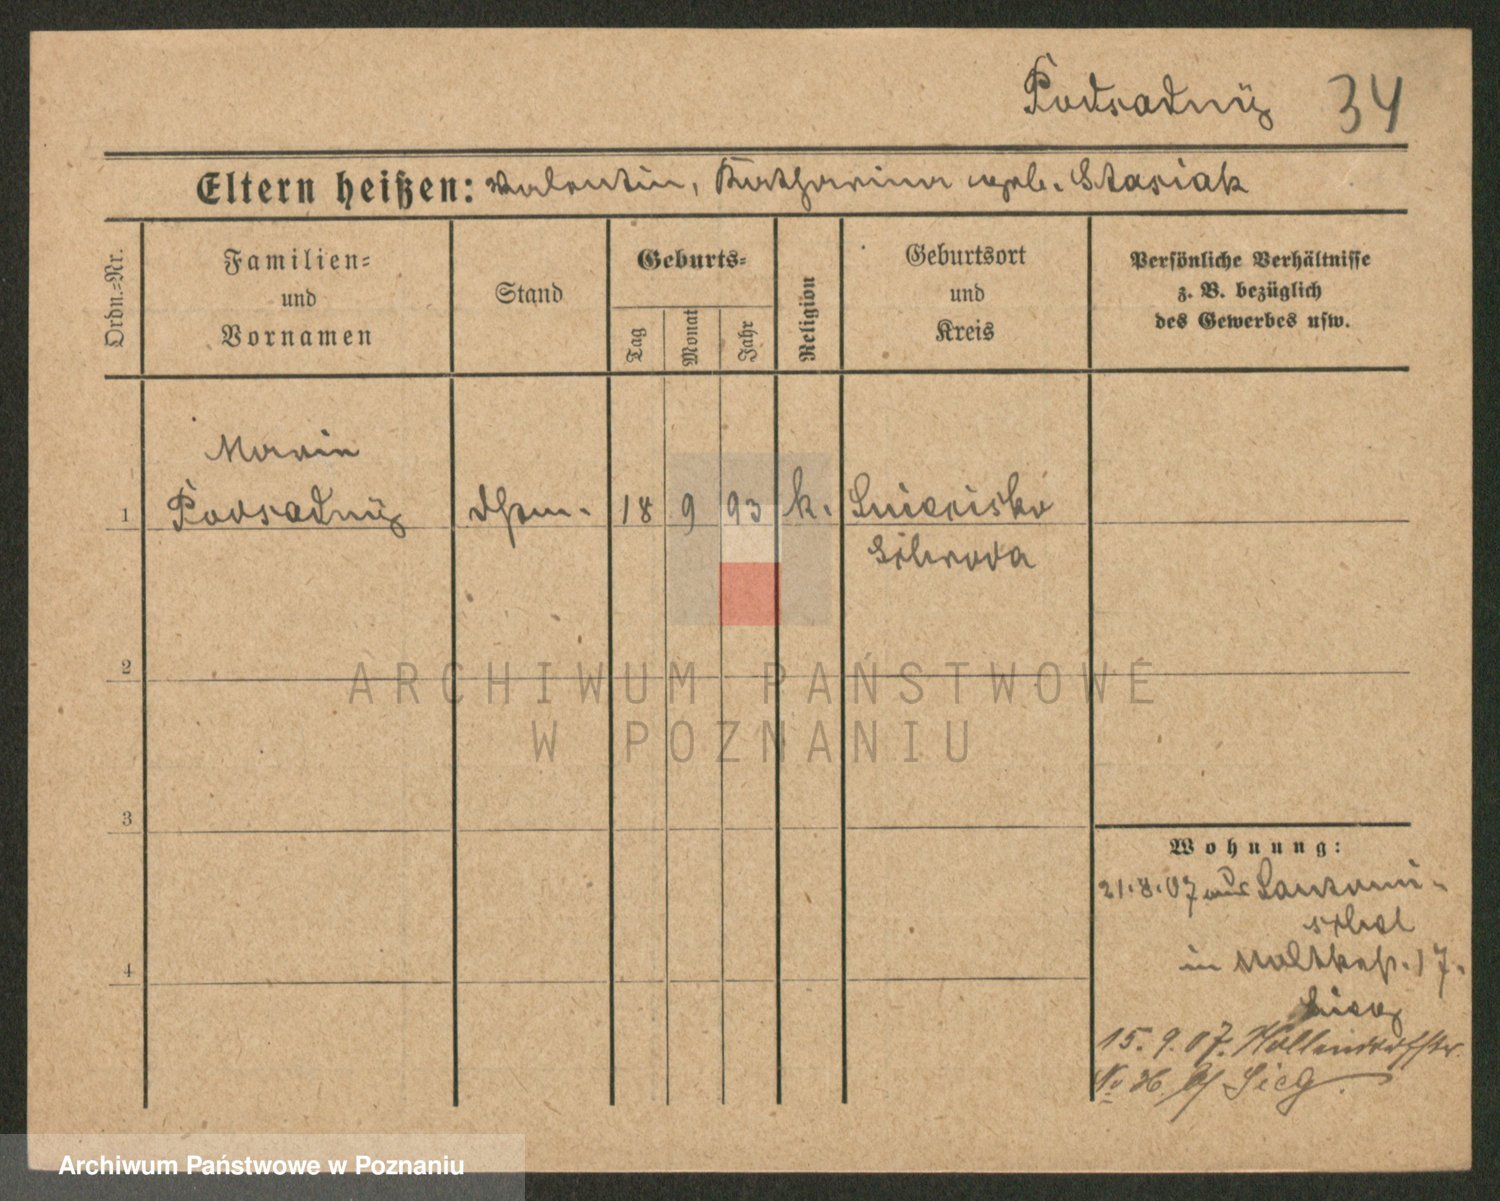 Podsadny 34
Eltern heißen: Valentin, Katharina geb. Stasiak
Ordn.-Nr.
Familien-
und
Vornamen
Stand
Geburts-
Tag
Monat
Jahr
Religion
Geburtsort
und
Kreis
Persönliche Verhältnisse
z. B. bezüglich
des Gewerbes usw.
Marie
1 Podsadny 18 9 93 k.
Schroda
2
ARCHIWUM PAŃSTWOWE
W POZNANIU
3
Wohnung:
21.8.07 aus
in Moltkestr. 17.
4
15. 9. 07.
Sieg
Archiwum Państwowe w Poznaniu